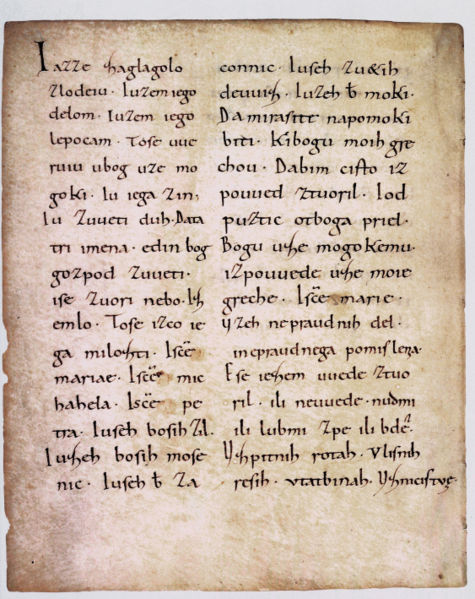 Iazze zaglagolo
zlodeiu · Iuzem iego
delom · Iuzem iego
lepocam · Tose uue
ruiu ubog uze mo
goki · Iu iega zin,
Iu zuueti duh · Data
tri imena · edin bog
gozpod zuueti ·
ise zuori nebo · Izh
emlo · Tose izco ie
ga milozti · Iscē
mariae · Iscē mic
hahela · Iscē pe
tra · Iuseh bosih zil ·
Iuzheh bosih mose
nic · Iuseh b̄ za
connic · Iuseh zu&ih
deuuiz · Iuzeh b̄ moki ·
Da mirasite napomoki
biti · Kibogu moih gre
chou · Dabim cisto iz
pouued ztuoril · Iod
puztic otboga priel ·
Bogu uzhe mogokemu ·
izpouuede uzhe moie
greche · Iscē marie ·
Uzeh nepraudnih del ·
inepraudnega pomislena ·
Ese iezhem uuede ztuo
ril · ili neuuede · nudmi
ili lubmi zpe ili bdē ·
Uzhpitnih rotah · Vlisnih
resih · vtatbinah ·